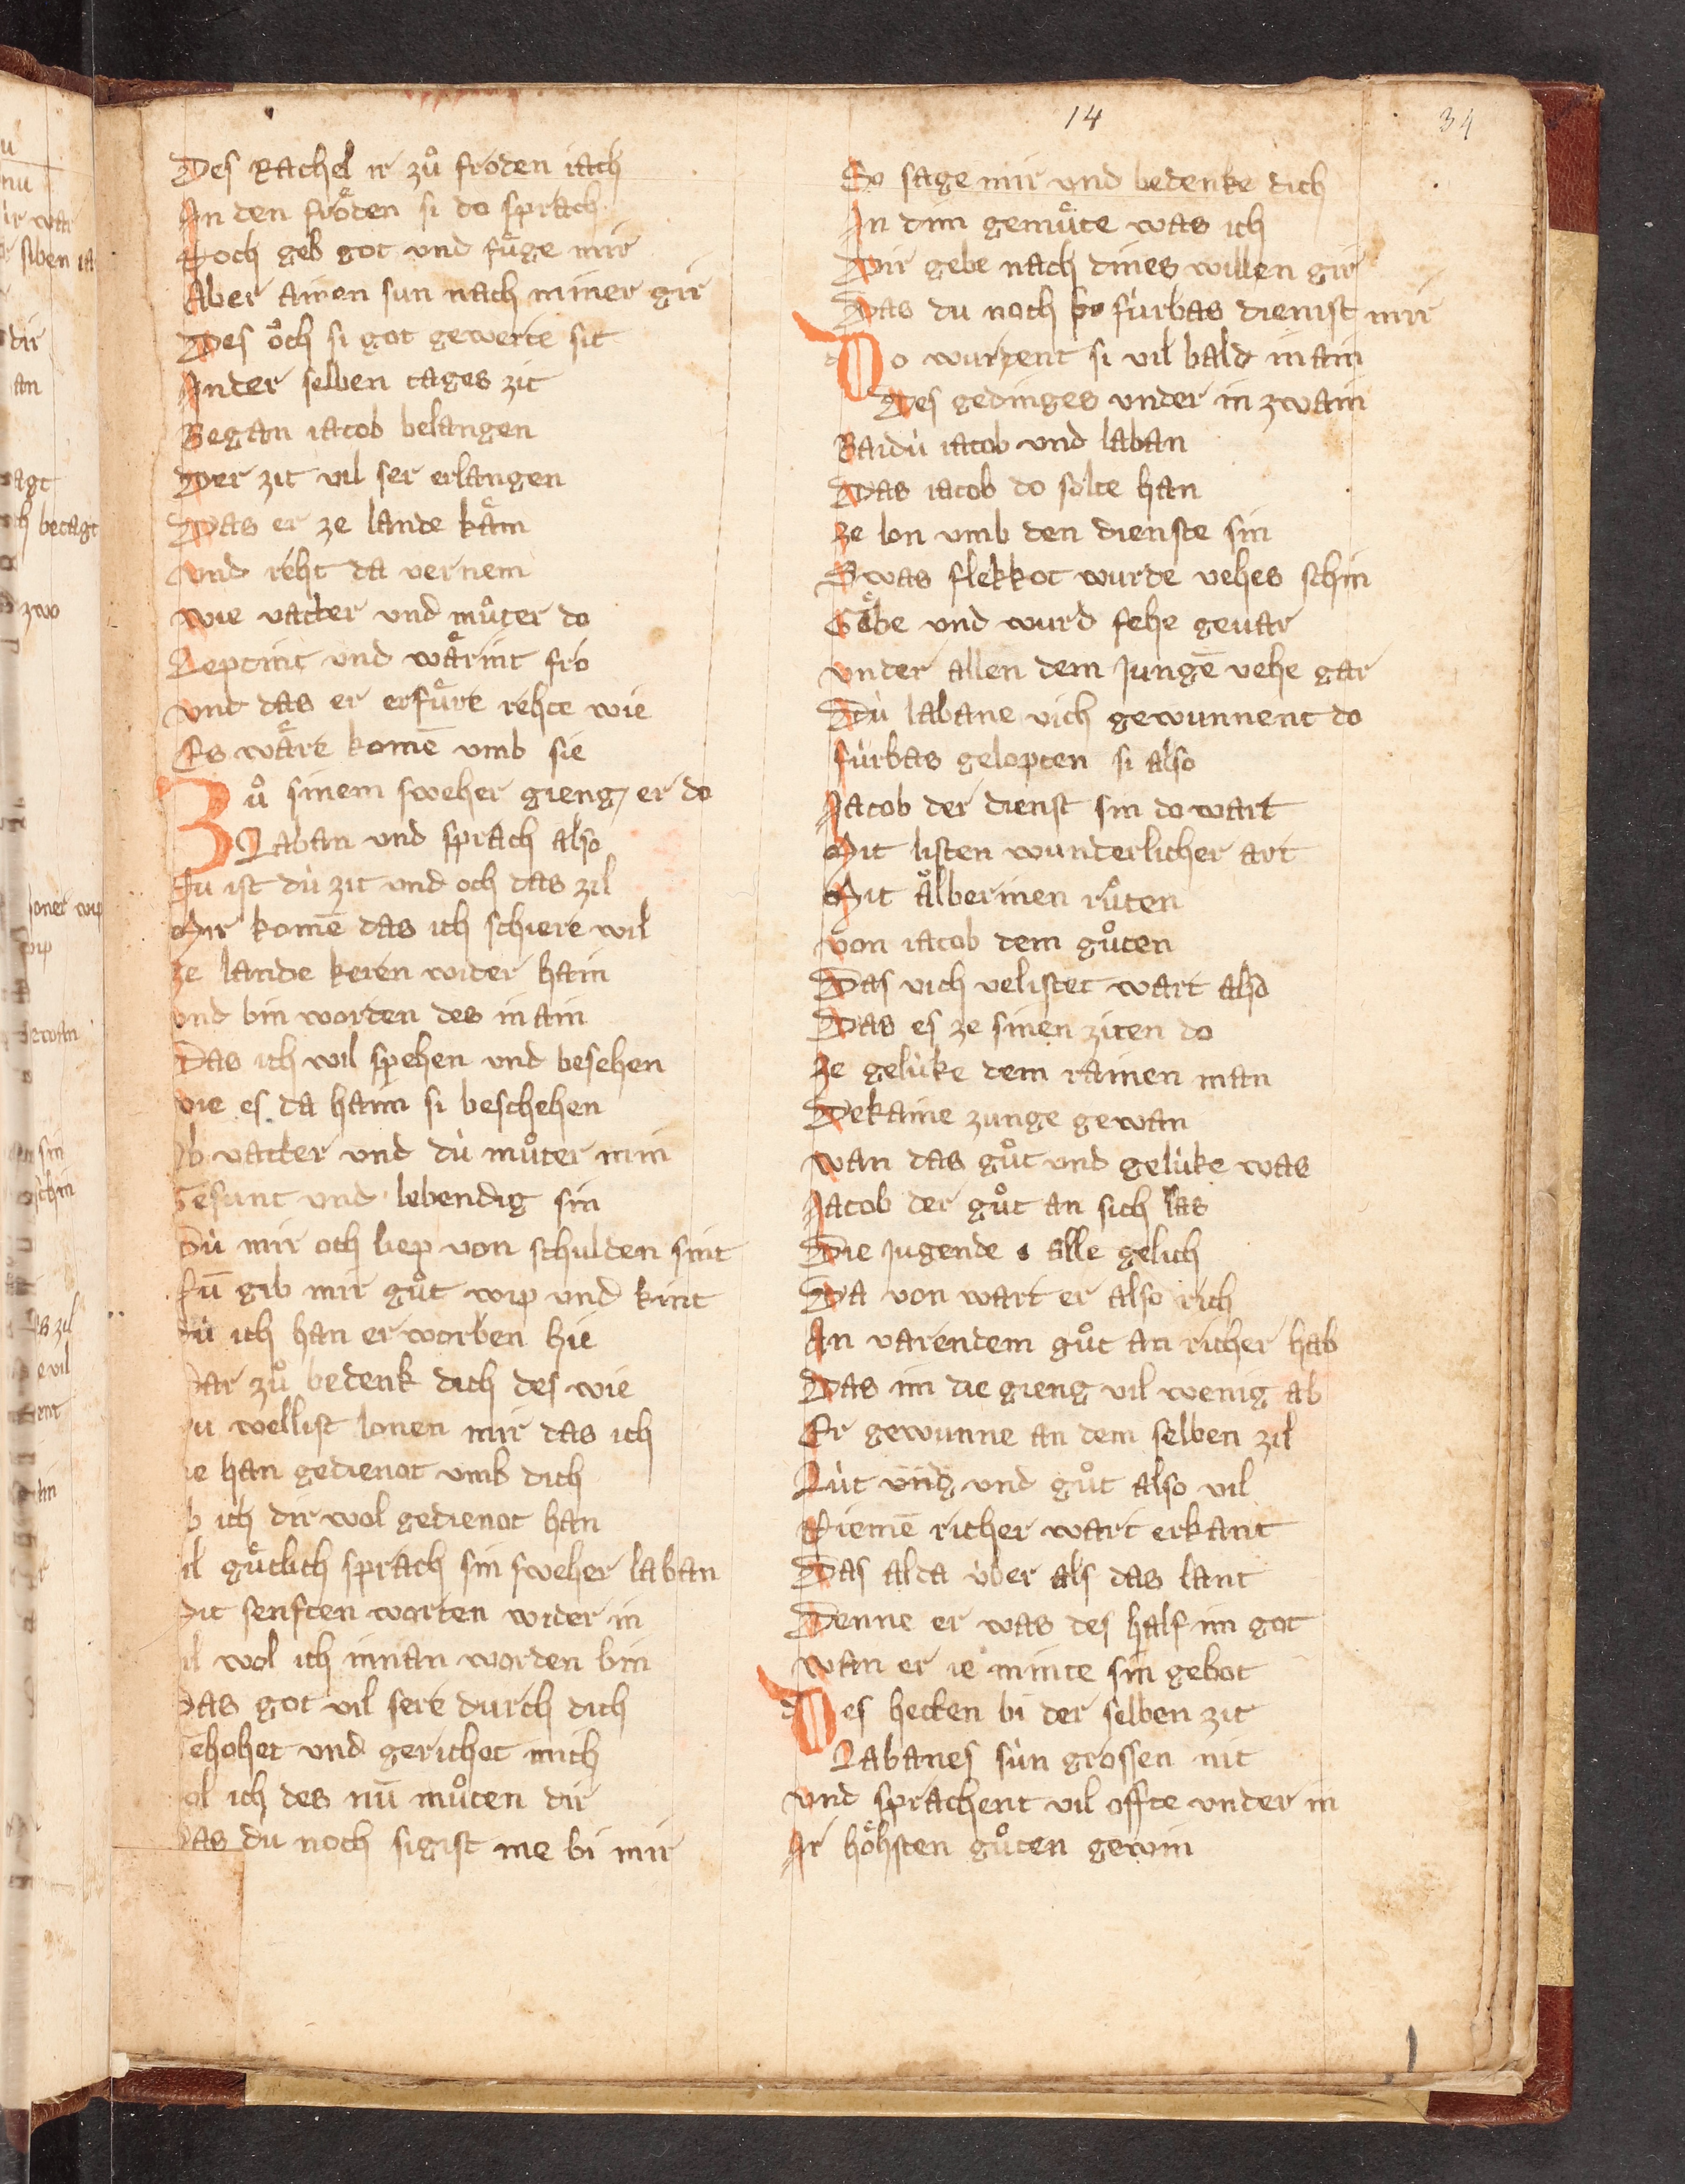 14
34
Des Rachel ir zuͦ froͤden iach
In den froͤden si do sprach
Noch geb got vnd fuͤge mir
Aber ainen sun nach miner gir
Des oͮch si got gewerte sit
An der selben tages zit
Began iacob belangen
Der zit vil ser erlangen
Das er ze lande kaͤm
vnd reht da vernem
wie vatter vnd muͦter do
Leptint vnd waͤrint fro
vnd das er erfuͤre rehte wie
Es waͤre komē vmb sie
Zuͦ sinem sweher gieng er do
Laban vnd sprach also
Nu ist dù zit vnd och das zil
Mir komē das ich schiere wil
ze lande keren wider hain
vnd bin worden des in ain
Das ich wil spehen vnd besehen
wie es da haim si beschehen
Ob vatter vnd dù muͦter min
Gesunt vnd lebendig sin
Dù mir och liep von schulden sint
Nū gib mir guͦt wip vnd kint
Dù ich han erworben hie
Dar zuͦ bedenk dich des wie
Du wellist lonen mir das ich
ie han gedienot vmb dich
Ob ich dir wol gedienot han
vil guͤtlich sprach sin sweher laban
Mit senften worten wider in
vil wol ich innan worden bin
Das got vil sere durch dich
Gehohet vnd gerichot mich
Sol ich des nū muͦten dir
Das du noch sigist me bi mir
So sage mir vnd bedenke dich
In dim gemuͤte was ich
Dir gebe nach dines willen gir
Das du noch fùrbas dienist mir
Do wurdent si vil bald in ain
Des gedinges vnder in zwain
Baidù iacob vnd laban
Das iacob do solte han
ze lon vmb den dienste sin
Swas flekkot wurde vehes schin
Gaͤbe vnd wurd fehe geuar
vnder allen dem Jungē vehe gar
Dù labane vich gewunnent do
fùrbas gelopten si also
Jacob der dienst sin do wart
Mit listen wunderlicher art
Mit aͤlberinen ruͦten
von iacob dem guͦten
Das vich velistet wart also
Das es ze sinen ziten do
ze gelùke dem rainen man
Dekaine zunge gewan
wan das guͦt vnd gelùke was
Jacob der guͦt an sich las
Die Jugende alle gelich
Da von wart er also rich
An varendem guͦt an richer hab
Das im die gieng vil wenig ab
Er gewunne an dem selben zil
Lùt vnd guͦt also vil
Niemē richer wart erkant
Das alda ùber als das lant
Denne er was des half im got
wan er ie minte sin gebot
Des hetten bi der selben zit
Labanes sùn grossen nit
vnd sprachent vil offte vnder in
Ir hoͤhsten guͦten gewin